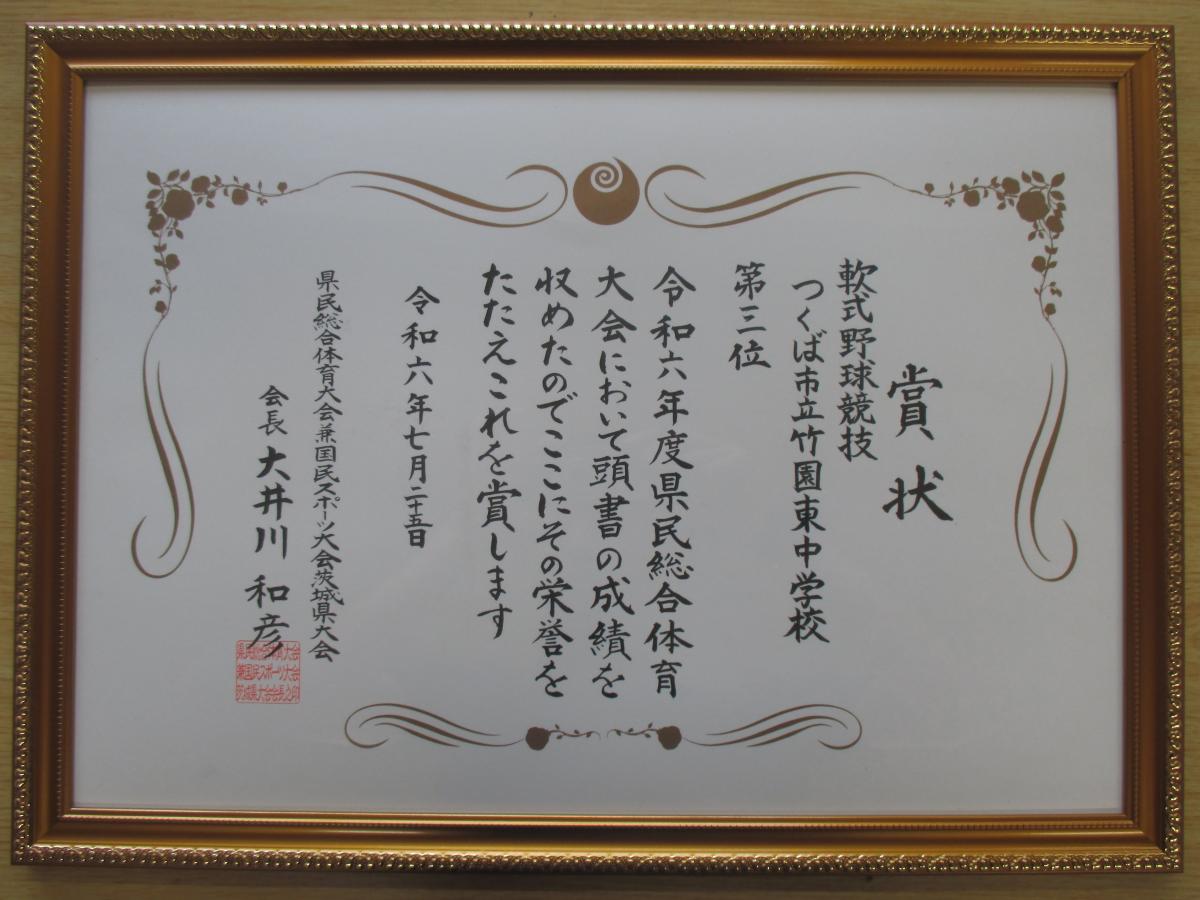 賞状
軟式野球競技
つくば市立竹園東中学校
第三位
令和六年度県民総合体育
大会において頭書の成績を
収めたのでここにその栄誉を
たたえこれを賞します
令和六年七月二十五日
県民総合体育大会兼国民スポーツ大会茨城県大会
会長 大井川 和彦
県民総合体育大会
兼国民スポーツ大会
茨城県大会会長之印